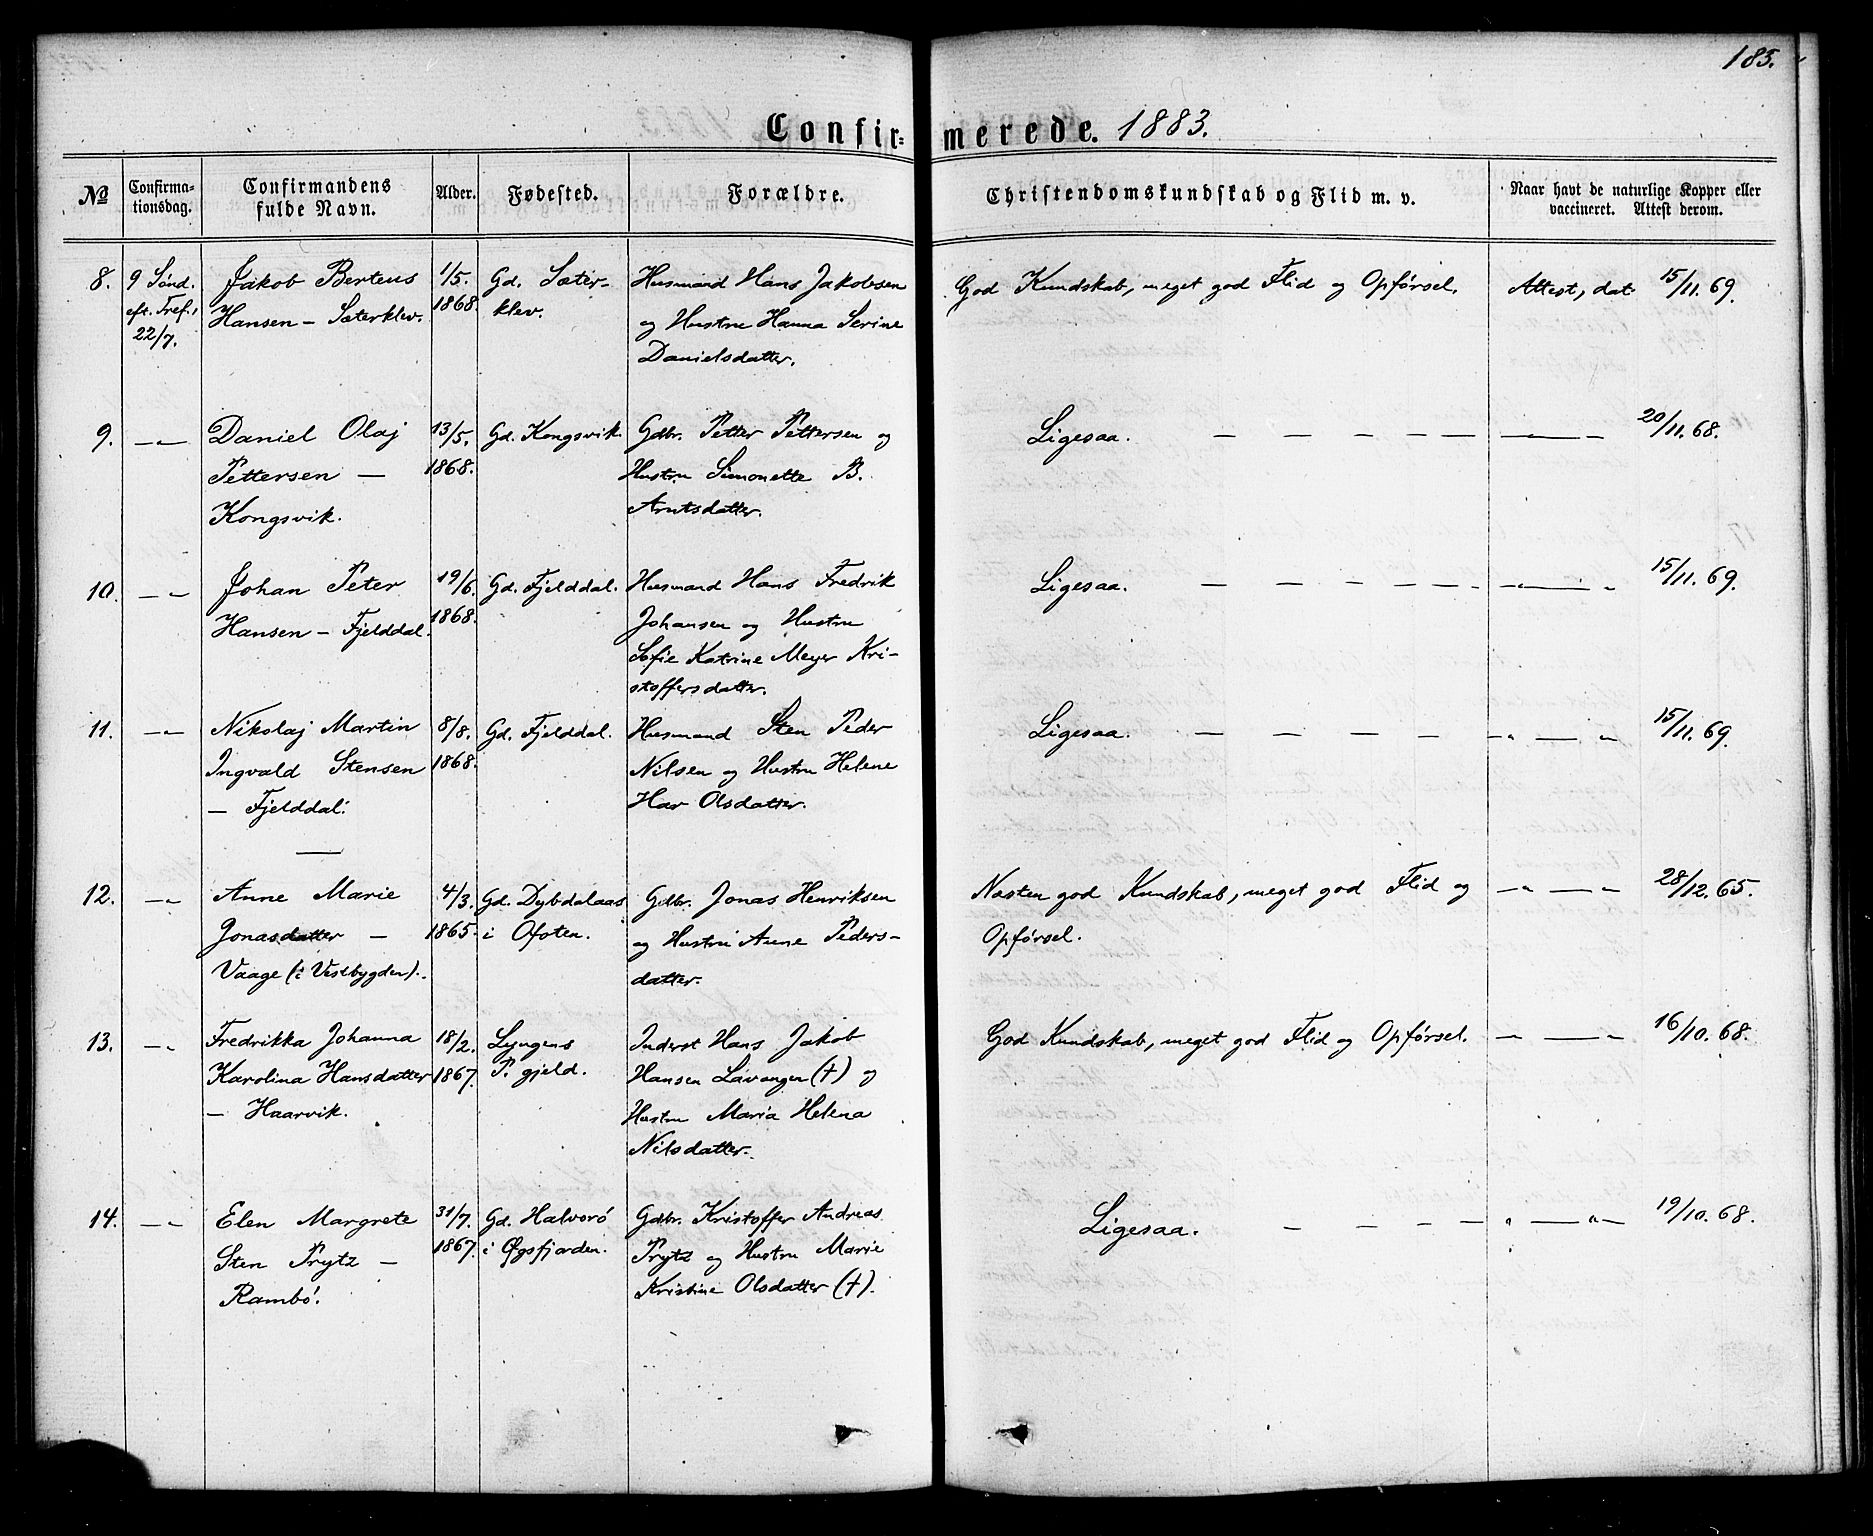 185.
Confir- merede. 1883.
No Confirmationsdag. Confirmandens fulde Navn. Alder. Fødested. Forældre. Christendomskundskab og Flid m. v. Naar havt de naturlige Kopper eller vaccineret. Attest derom.
8. 9 Sønd. Jakob Berteus 1/5. Gd. Sæter- Husmand Hans Jakobsen God Kundskab, meget god Flid og Opførsel. Attest, dat. 15/11. 69.
eft. Tref., Hansen – Sæterklev. 1868. klev. og Hustru Hanna Serine
22/7. Danielsdatter.
9. —„— Daniel Olaj 13/5. Gd. Kongsvik. Gdbr. Petter Pettersen og Ligesaa. — — — — — — — 20/11. 68.
Pettersen — 1868. Hustru Simonette B.
Kongsvik. Arntsdatter.
10. —„— Johan Peter 19/6. Gd. Fjelddal. Husmand Hans Fredrik Ligesaa. — — — — — — „ — „ 15/11. 69.
Hansen – Fjelddal. 1868. Johansen og Hustru
Sofie Katrine Meyer Kri-
stoffersdatter.
11. —„— Nikolaj Martin 8/8. Gd. Fjelddal. Husmand Sten Peder Ligesaa. — — — — — „ — „ 15/11. 69.
Ingvald Stensen 1868. Nilsen og Hustru Helene
— Fjelddal. Har Olsdatter.
—
12. —„— Anne Marie 4/3. Gd. Dybdalaas Gdbr. Jonas Henriksen Næsten god Kundskab, meget god Flid og —„ — „— 28/12. 65.
Jonasdatter — 1865. i Ofoten. og Hustru Anne Peders- Opførsel.
Vaage (i Vestbygden). datter.
13. —„— Fredrikka Johanna 18/2. Lyngens Inderst Hans Jakob God Kundskab, meget god Flid og Opførsel. —„ — „— 16/10. 68.
Karolina Hansdatter 1867. P. gjeld. Hansen Lavangen (†) og
— Haarvik. Hustru Maria Helena
Nilsdatter.
14. —„— Elen Margrete 31/7. Gd. Halvorø Gdbr. Kristoffer Andreas Ligesaa. — — — — „ —„— 19/10. 68.
Sten Prytz — 1867. i Øgsfjorden. Prytz og Hustru Marie
Rambø. Kristine Olsdatter (†).